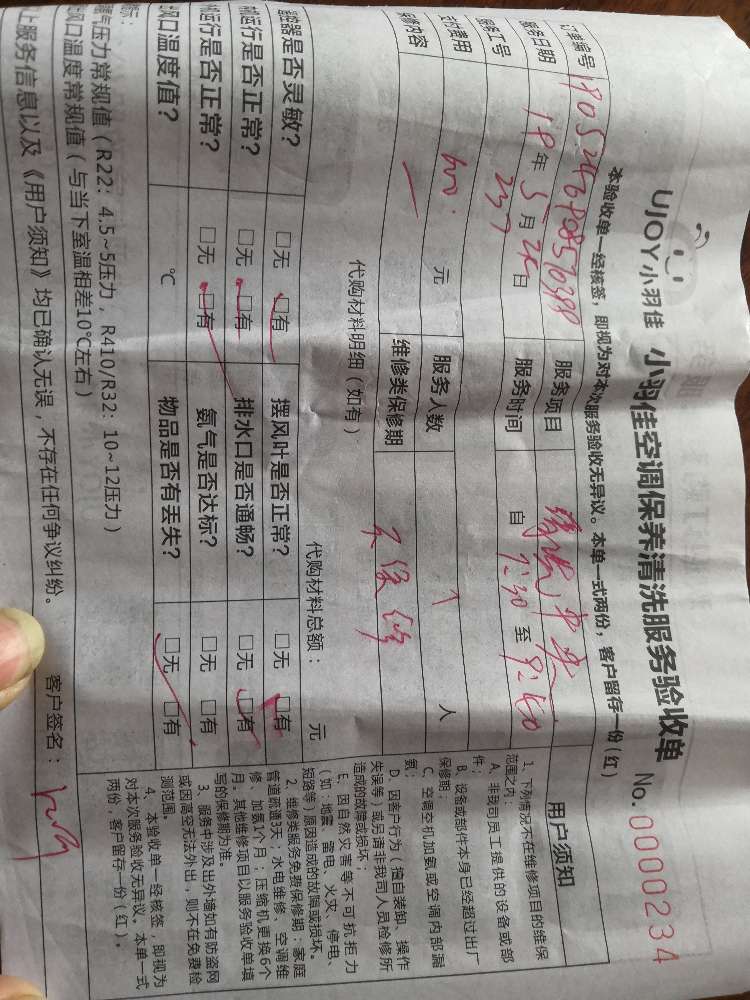 UJOY小羽佳 小羽佳空调保养清洗服务验收单 No.0000234
本验收单一经核签，即视为对本次服务验收无异议。本单一式两份，客户留存一份(红)
订单编号
服务项目
服务日期 18年5月26日
服务时间 自 7:30 至 9:50
服务工号 237
付费用 600. 元
服务人数 1 人
保内容
维修类保修期
代购材料明细（如有）
代购材料总额： 元
控器是否灵敏？ □无 □有
摆风叶是否正常？ □无 □有
运行是否正常？ □无 □有
排水口是否通畅？ □无 □有
运行是否正常？ □无 □有
氨气是否达标？ □无 □有
风口温度值？ ℃
物品是否有丢失？ □无 □有
示：
气压力常规值（R22：4.5~5压力，R410/R32：10~12压力）
风口温度常规值（与当下室温相差10℃左右）
上服务信息以及《用户须知》均已确认无误，不存在任何争议纠纷。 客户签名：
用户须知
1、下列情况不在维修项目的维保
范围之内：
A、非我司员工提供的设备或部
件；
B、设备或部件本身已经超过出厂
保修期；
C、空调空机加氨或空调内部漏
氨；
D、因客户行为（擅自装卸、操作
失误等）或另请非我司人员检修所
造成的故障或损坏；
E、因自然灾害等不可抗拒力
（如：地震、雷电、火灾、停电、
短路等）原因造成的故障或损坏。
2、维修类服务免费保修期：家庭
管道疏通3天；水电维修、空调维
修、加氨1个月；压缩机更换6个
月。其他维修项目以服务验收单填
写的保修期为准。
3、服务中涉及出外墙如有防盗网
或因高空无法外出，则不在免费检
测范围。
4、本验收单一经核签，即视为
对本次服务验收无异议。本单一式
两份，客户留存一份（红）。